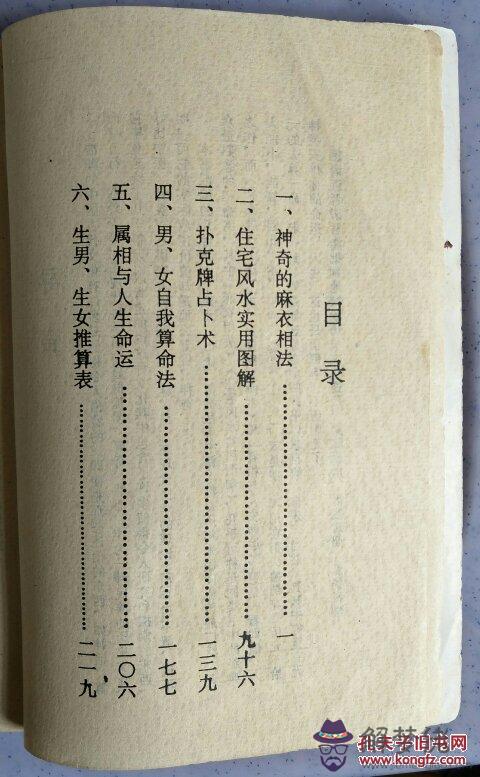 目录
一、神奇的麻衣相法……………………一
二、住宅风水实用图解……………………九十六
三、扑克牌占卜术……………………一三九
四、男、女自我算命法……………………一七七
五、属相与人生命运……………………二〇六
六、生男、生女推算表……………………二一九
孔夫子旧书网
www.kongfz.com